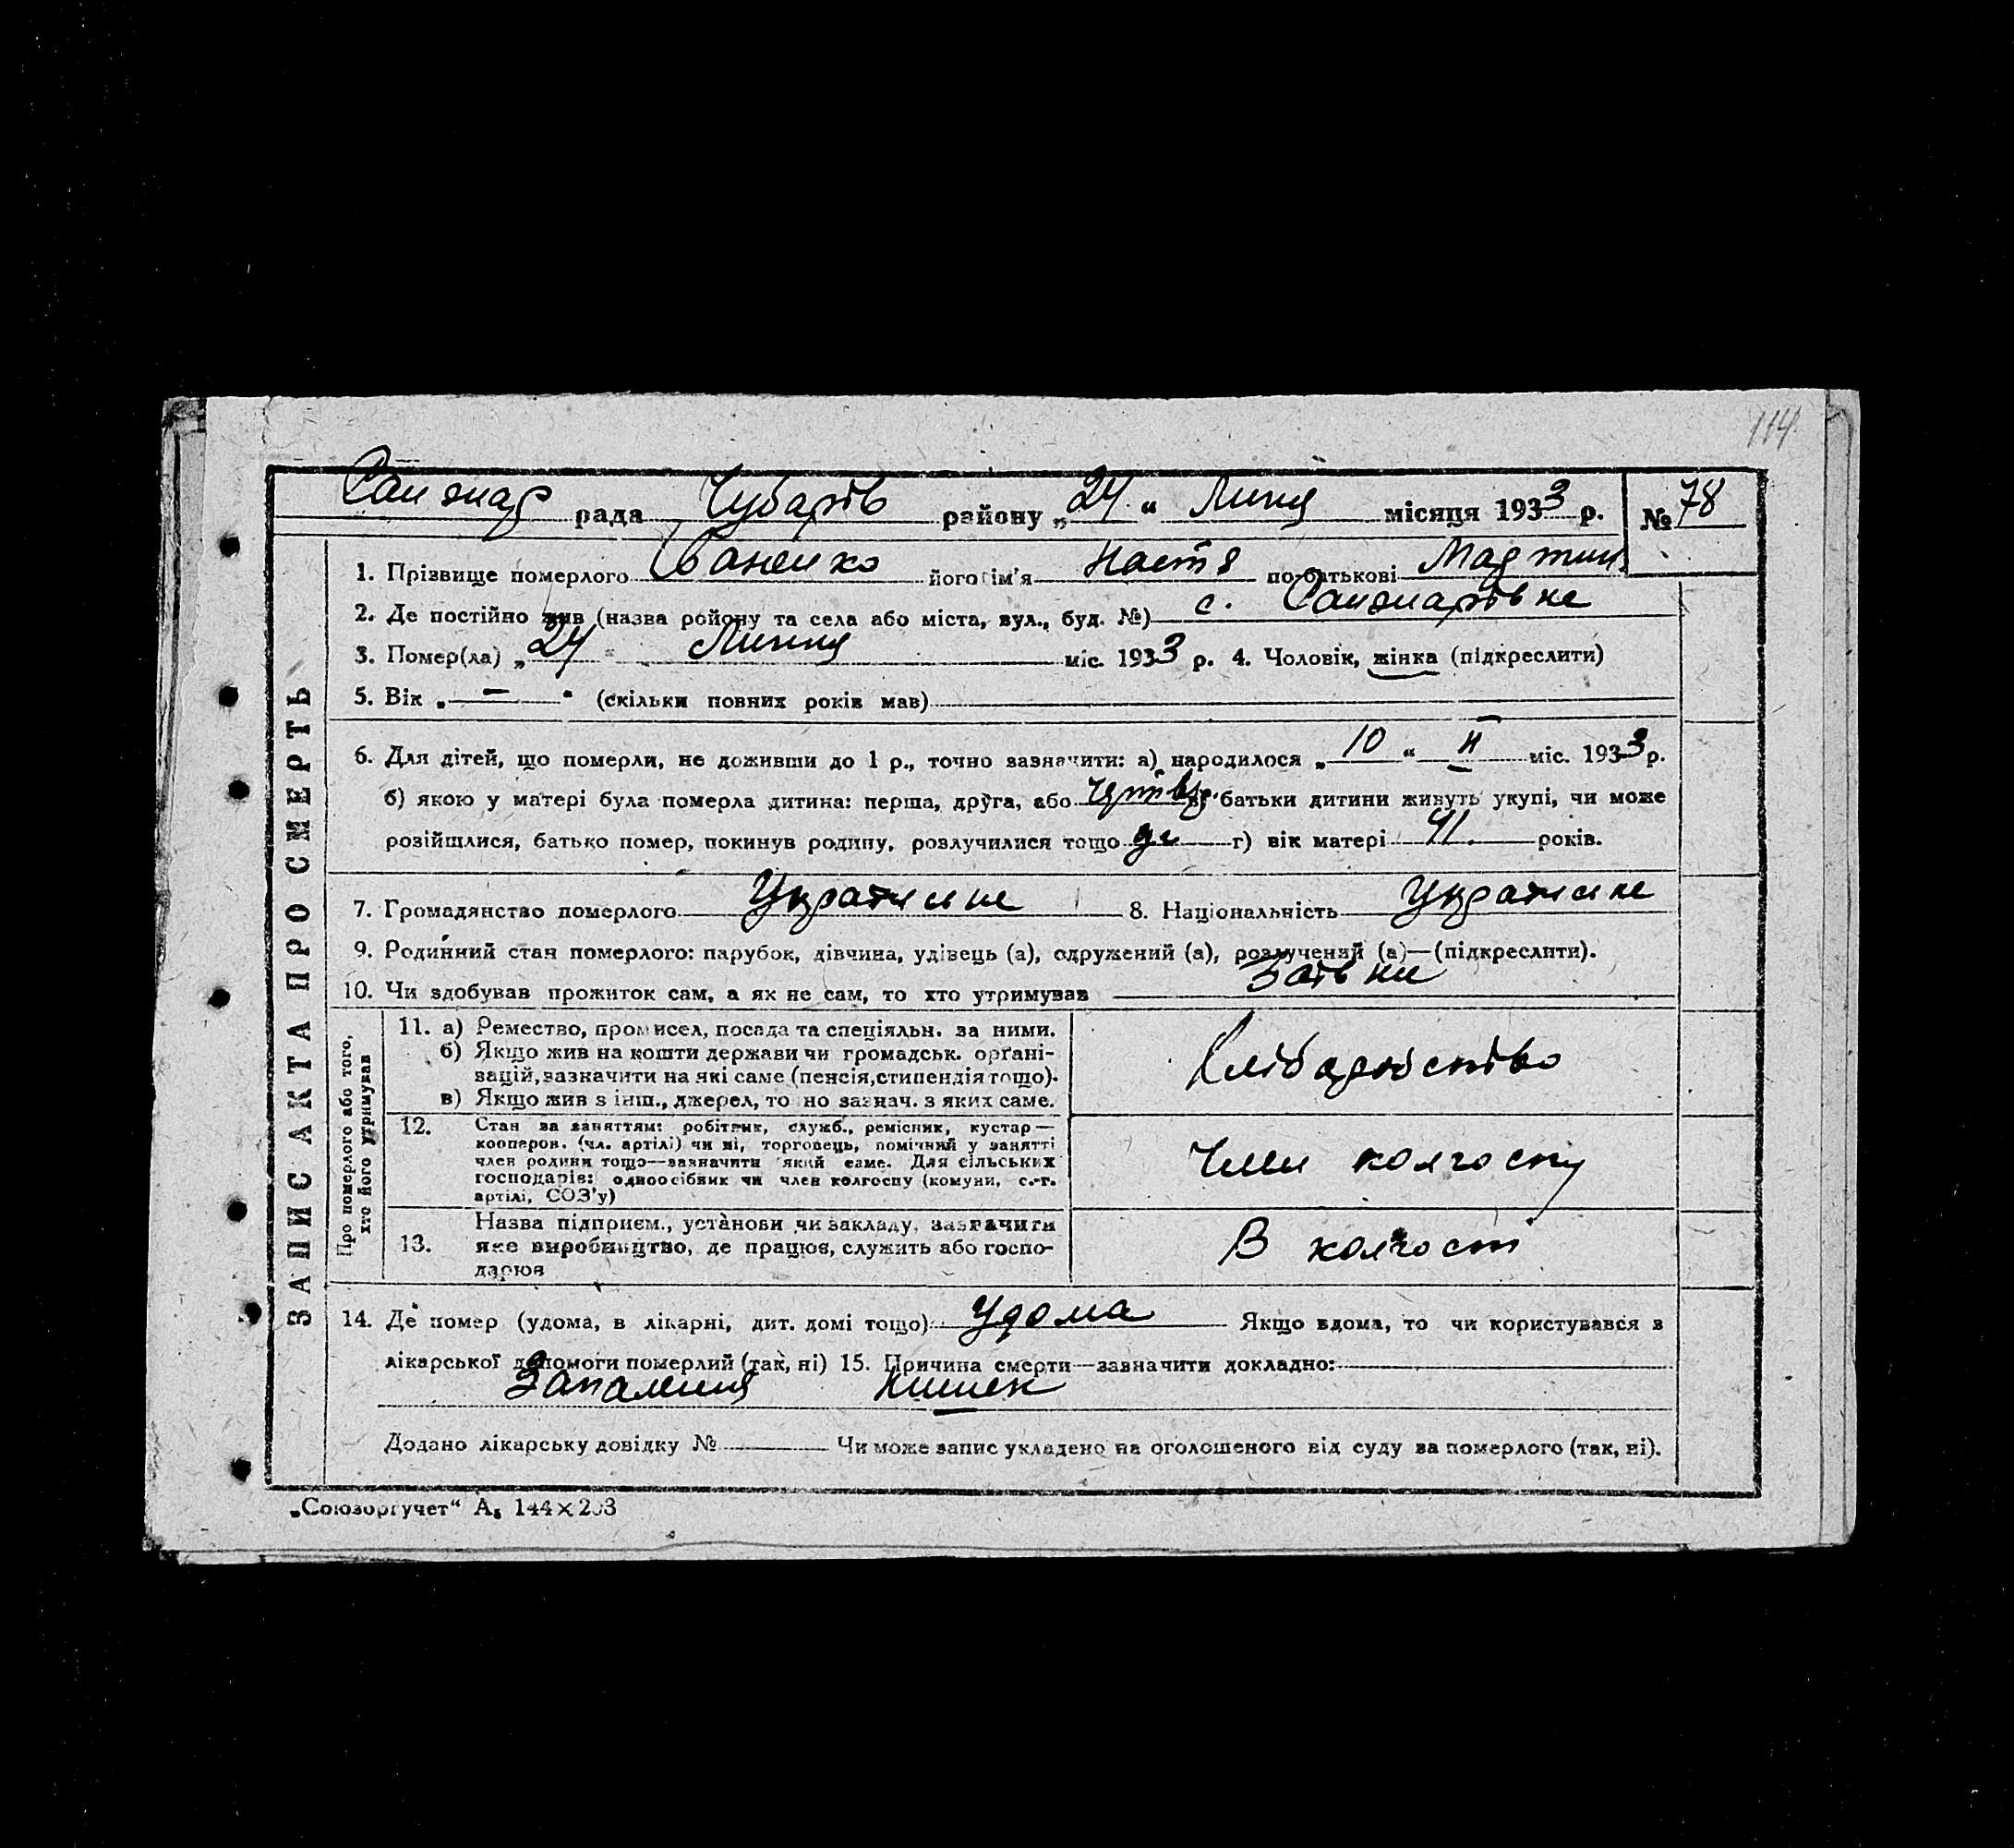 114
Санжар рада Чубарів району „24“ Липня місяця 1933 р. № 78
1. Прізвище померлого його ім'я Настя по батькові Мартин.
2. Де постійно жив (назва ройону та села або міста, вул., буд. №) с. Санжарівка
3. Помер(ла) „24“ Липня міс. 1933 р. 4. Чоловік, жінка (підкреслити)
5. Вік „—“ (скільки повних років мав)
6. Для дітей, що померли, не доживши до 1 р., точно зазначити: а) народилося „10“ II міс. 1933 р.
б) якою у матері була померла дитина: перша, друга, або батьки дитини живуть укупі, чи може
розійшлися, батько помер, покинув родину, розлучилися тощо г) вік матері 41. років.
7. Громадянство померлого Українка 8. Національність Українка
9. Родинний стан померлого: парубок, дівчина, удівець (а), одружений (а), розлучений (а)—(підкреслити).
10. Чи здобував прожиток сам, а як не сам, то хто утримував
ЗАПИС АКТА ПРО СМЕРТЬ
Про померлого або того,
хто його утримував
11. а) Ремество, промисел, посада та спеціяльн. за ними.
б) Якщо жив на кошти держави чи громадськ. орґані-
зацій, зазначити на які саме (пенсія, стипендія тощо).
в) Якщо жив з інш., джерел, то но зазнач. з яких саме.
Хліборобство
12. Стан за заняттям: робітник, служб., ремісник, кустар—
кооперов. (чл. артілі) чи ні, торговець, помічний у занятті
член родини тощо—зазначити який саме. Для сільських
господарів: одноосібник чи член колгоспу (комуни, с.-г.
артілі, СОЗ'у)
Член колгоспу
13. Назва підприєм., установи чи закладу, зазначити
яке виробництво, де працює, служить або госпо-
дарює
В колгоспі
14. Де помер (удома, в лікарні, дит. домі тощо) Удома Якщо вдома, то чи користувався з
лікарської допомоги померлий (так, ні) 15. Причина смерти—зазначити докладно:
Запалення кишек
Додано лікарську довідку № Чи може запис укладено на оголошеного від суду за померлого (так, ні).
„Союзоргучет“ А5 144×203